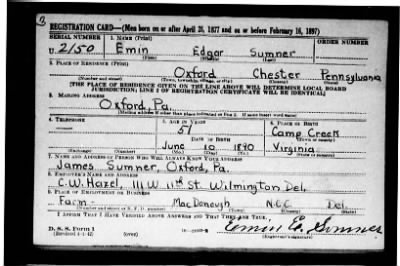 REGISTRATION CARD—(Men born on or after April 28, 1877 and on or before February 16, 1897)
SERIAL NUMBER 1. NAME (Print) ORDER NUMBER
U 2150 Emin Edgar Sumner
(First) (Middle) (Last)
2. PLACE OF RESIDENCE (Print)
Oxford Chester Pennsylvania
(Number and street) (Town, township, village, or city) (County) (State)
[THE PLACE OF RESIDENCE GIVEN ON THE LINE ABOVE WILL DETERMINE LOCAL BOARD
JURISDICTION; LINE 2 OF REGISTRATION CERTIFICATE WILL BE IDENTICAL]
3. MAILING ADDRESS
Oxford, Pa.
[Mailing address if other than place indicated on line 2. If same insert word same]
4. TELEPHONE 5. AGE IN YEARS 6. PLACE OF BIRTH
51 Camp Creek
DATE OF BIRTH (Town or county)
June 10 1890 Virginia
(Exchange) (Number) (Mo.) (Day) (Yr.) (State or country)
7. NAME AND ADDRESS OF PERSON WHO WILL ALWAYS KNOW YOUR ADDRESS
James Sumner, Oxford, Pa.
8. EMPLOYER'S NAME AND ADDRESS
C.W. Hazel, 111 W 11th St. Wilmington Del.
9. PLACE OF EMPLOYMENT OR BUSINESS
Farm - MacDonough N.C.C Del.
(Number and street or R. F. D. number) (Town) (County) (State)
I AFFIRM THAT I HAVE VERIFIED ABOVE ANSWERS AND THAT THEY ARE TRUE.
D. S. S. Form 1 Emin E. Sumner
(Revised 4-1-42) (Registrant's signature)